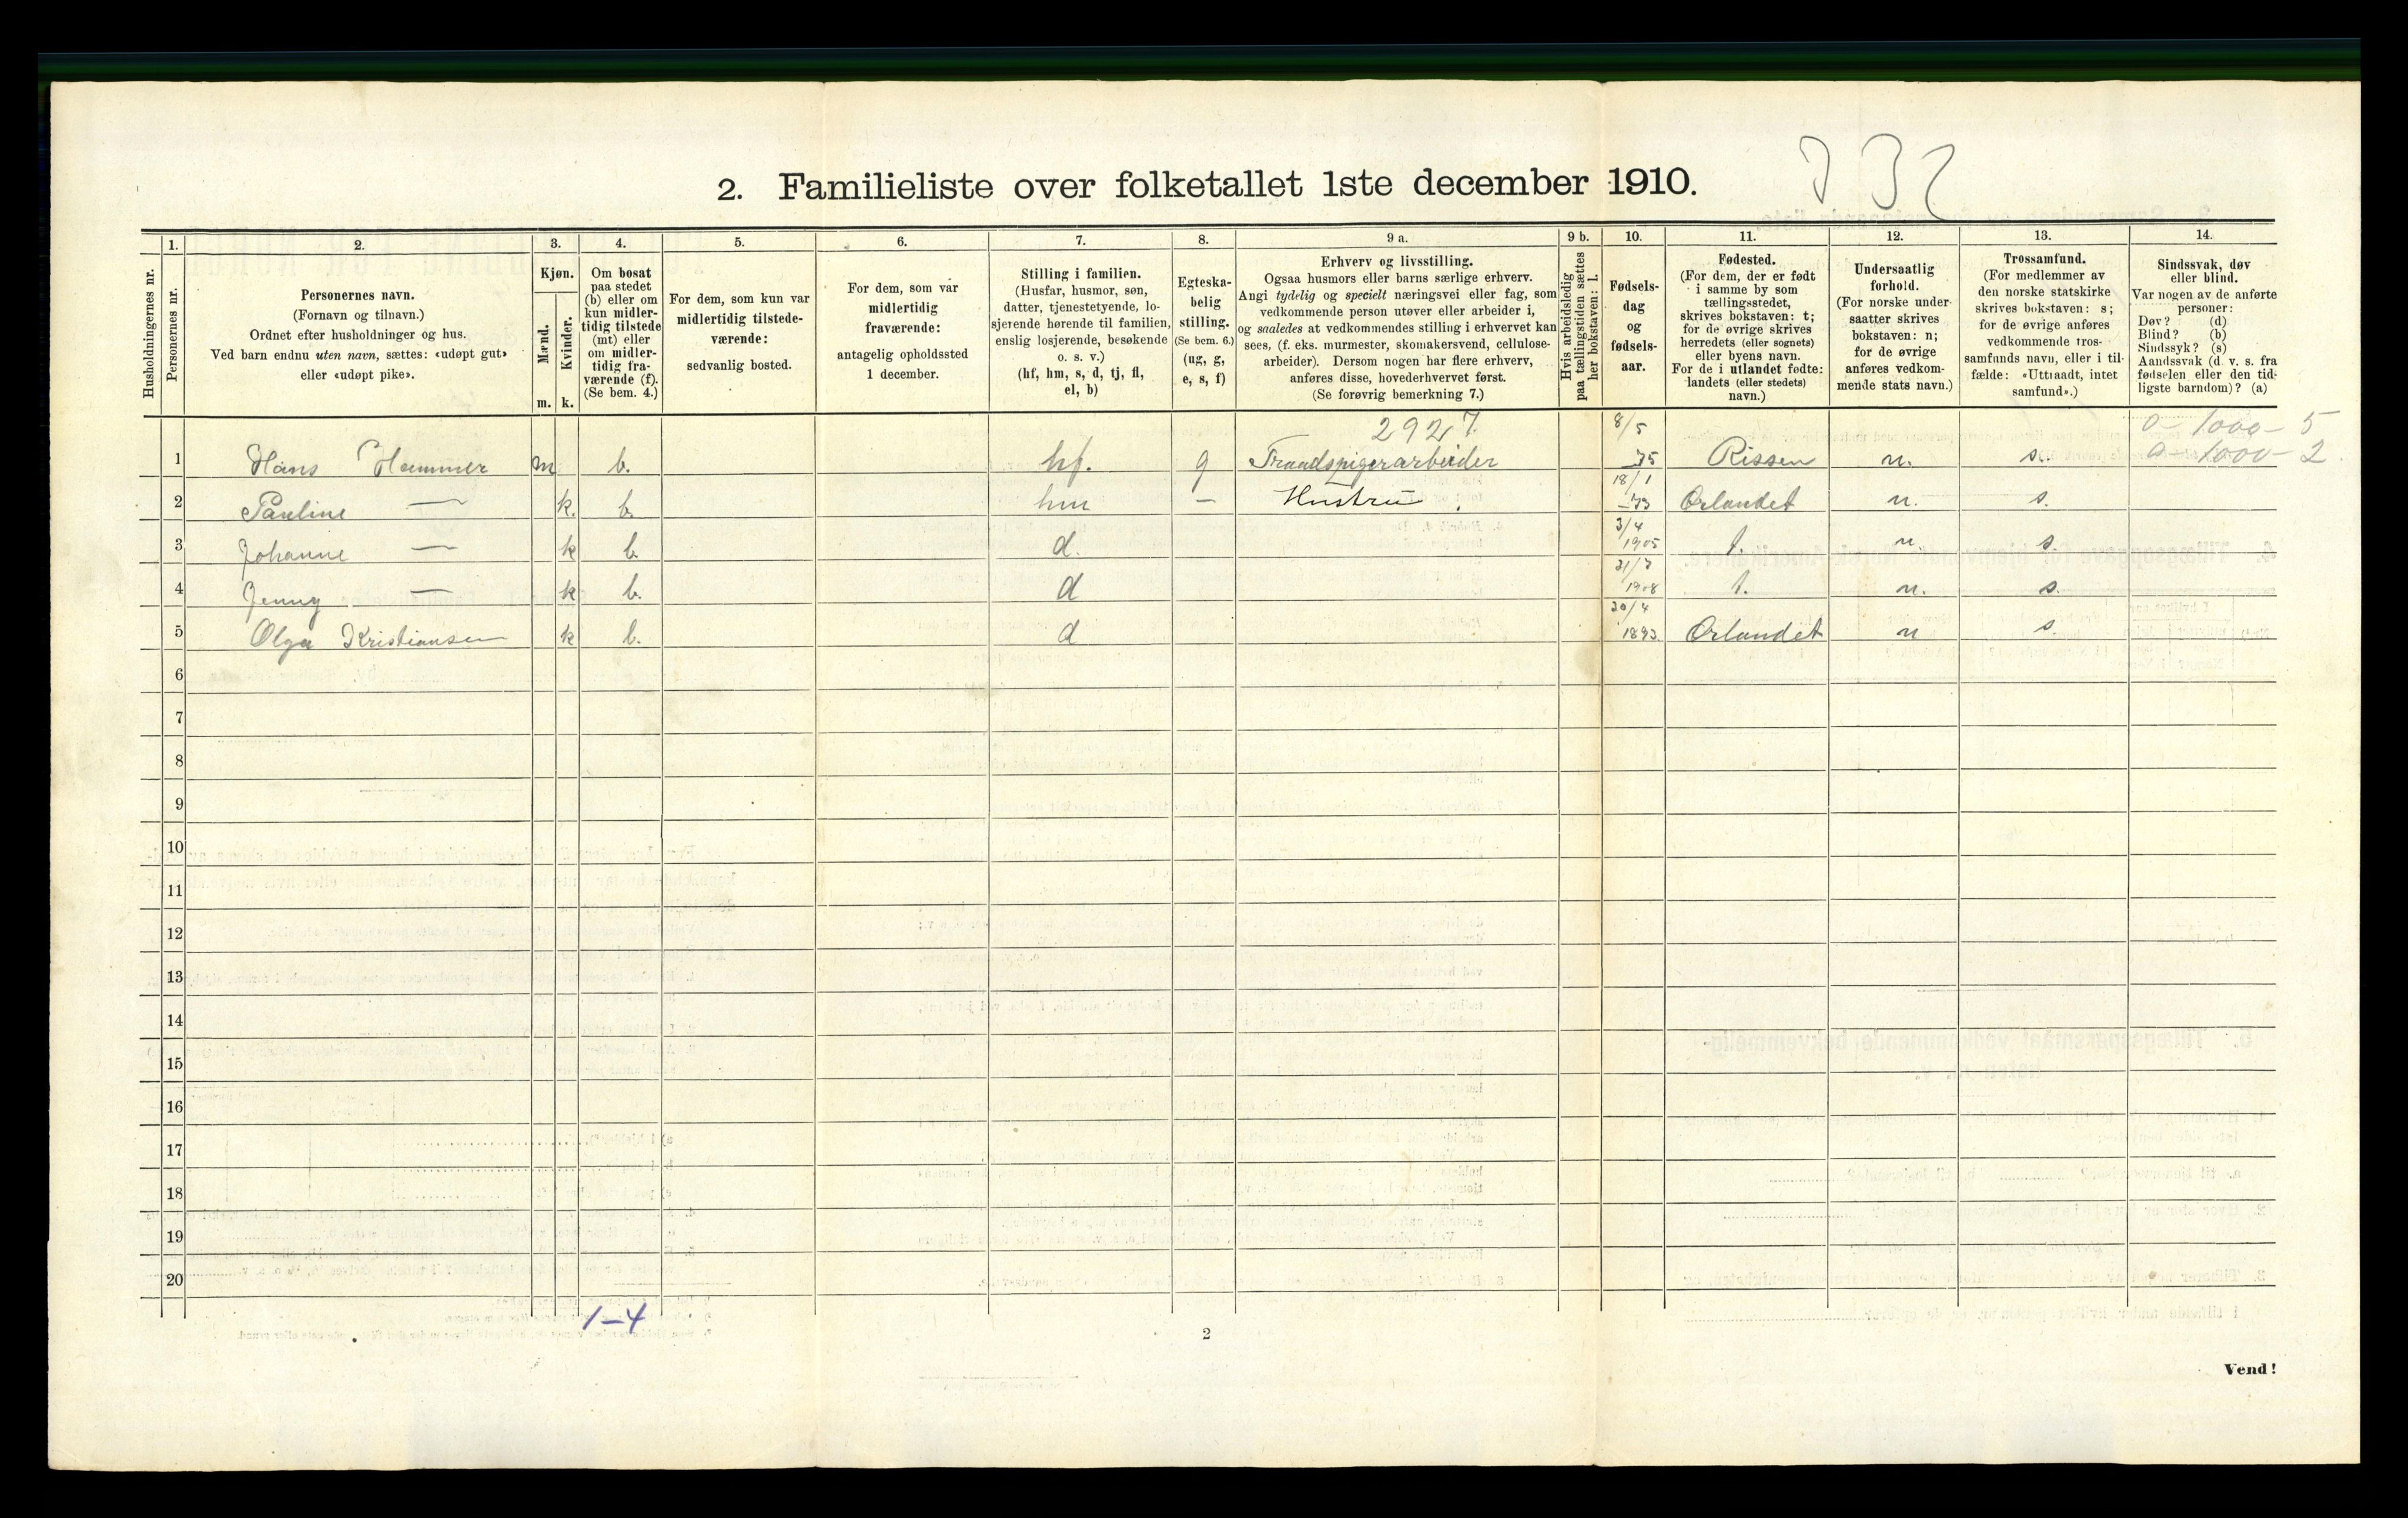 2. Familieliste over folketallet 1ste december 1910.
1. 2. 3. 4. 5. 6. 7. 8. 9 a. 9 b. 10. 11. 12. 13. 14.
Husholdningernes nr.
Personernes nr.
Personernes navn.
(Fornavn og tilnavn.)
Ordnet efter husholdninger og hus.
Ved barn endnu uten navn, sættes: «udøpt gut»
eller «udøpt pike».
Kjøn.
Mænd.
Kvinder.
m. k.
Om bosat
paa stedet
(b) eller om
kun midler-
tidig tilstede
(mt) eller
om midler-
tidig fra-
værende (f).
(Se bem. 4.)
For dem, som kun var
midlertidig tilstede-
værende:
sedvanlig bosted.
For dem, som var
midlertidig
fraværende:
antagelig opholdssted
1 december.
Stilling i familien.
(Husfar, husmor, søn,
datter, tjenestetyende, lo-
sjerende hørende til familien,
enslig losjerende, besøkende
o. s. v.)
(hf, hm, s, d, tj, fl,
el, b)
Egteska-
belig
stilling.
(Se bem. 6.)
(ug, g,
e, s, f)
Erhverv og livsstilling.
Ogsaa husmors eller barns særlige erhverv.
Angi tydelig og specielt næringsvei eller fag, som
vedkommende person utøver eller arbeider i,
og saaledes at vedkommendes stilling i erhvervet kan
sees, (f. eks. murmester, skomakersvend, cellulose-
arbeider). Dersom nogen har flere erhverv,
anføres disse, hovederhvervet først.
(Se forøvrig bemerkning 7.)
Hvis arbeidsledig
paa tællingstiden sættes
her bokstaven: l.
Fødsels-
dag
og
fødsels-
aar.
Fødested.
(For dem, der er født
i samme by som
tællingsstedet,
skrives bokstaven: t;
for de øvrige skrives
herredets (eller sognets)
eller byens navn.
For de i utlandet fødte:
landets (eller stedets)
navn.)
Undersaatlig
forhold.
(For norske under-
saatter skrives
bokstaven: n;
for de øvrige
anføres vedkom-
mende stats navn.)
Trossamfund.
(For medlemmer av
den norske statskirke
skrives bokstaven: s;
for de øvrige anføres
vedkommende tros-
samfunds navn, eller i til-
fælde: «Uttraadt, intet
samfund».)
Sindssvak, døv
eller blind.
Var nogen av de anførte
personer:
Døv? (d)
Blind? (b)
Sindssyk? (s)
Aandssvak (d. v. s. fra
fødselen eller den tid-
ligste barndom)? (a)
2927 8/5 0-1000-5
1 Hans Hammer m b. hf. g Traadspigerarbeider 75 Rissen n. s. 0-1000-2
18/1
2 Pauline — k. b. hm — Hustru -73 Ørlandet n. s.
3/4
3 Johanne — k b. d. 1905 t. n. s.
1908
4 Jenny — k b. d t. n. s.
20/4
5 Olga Kristiansen k b. d 1893 Ørlandet n s.
6
7
8
9
10
11
12
13
14
15
16
17
18
19
20
1-4
2
Vend!